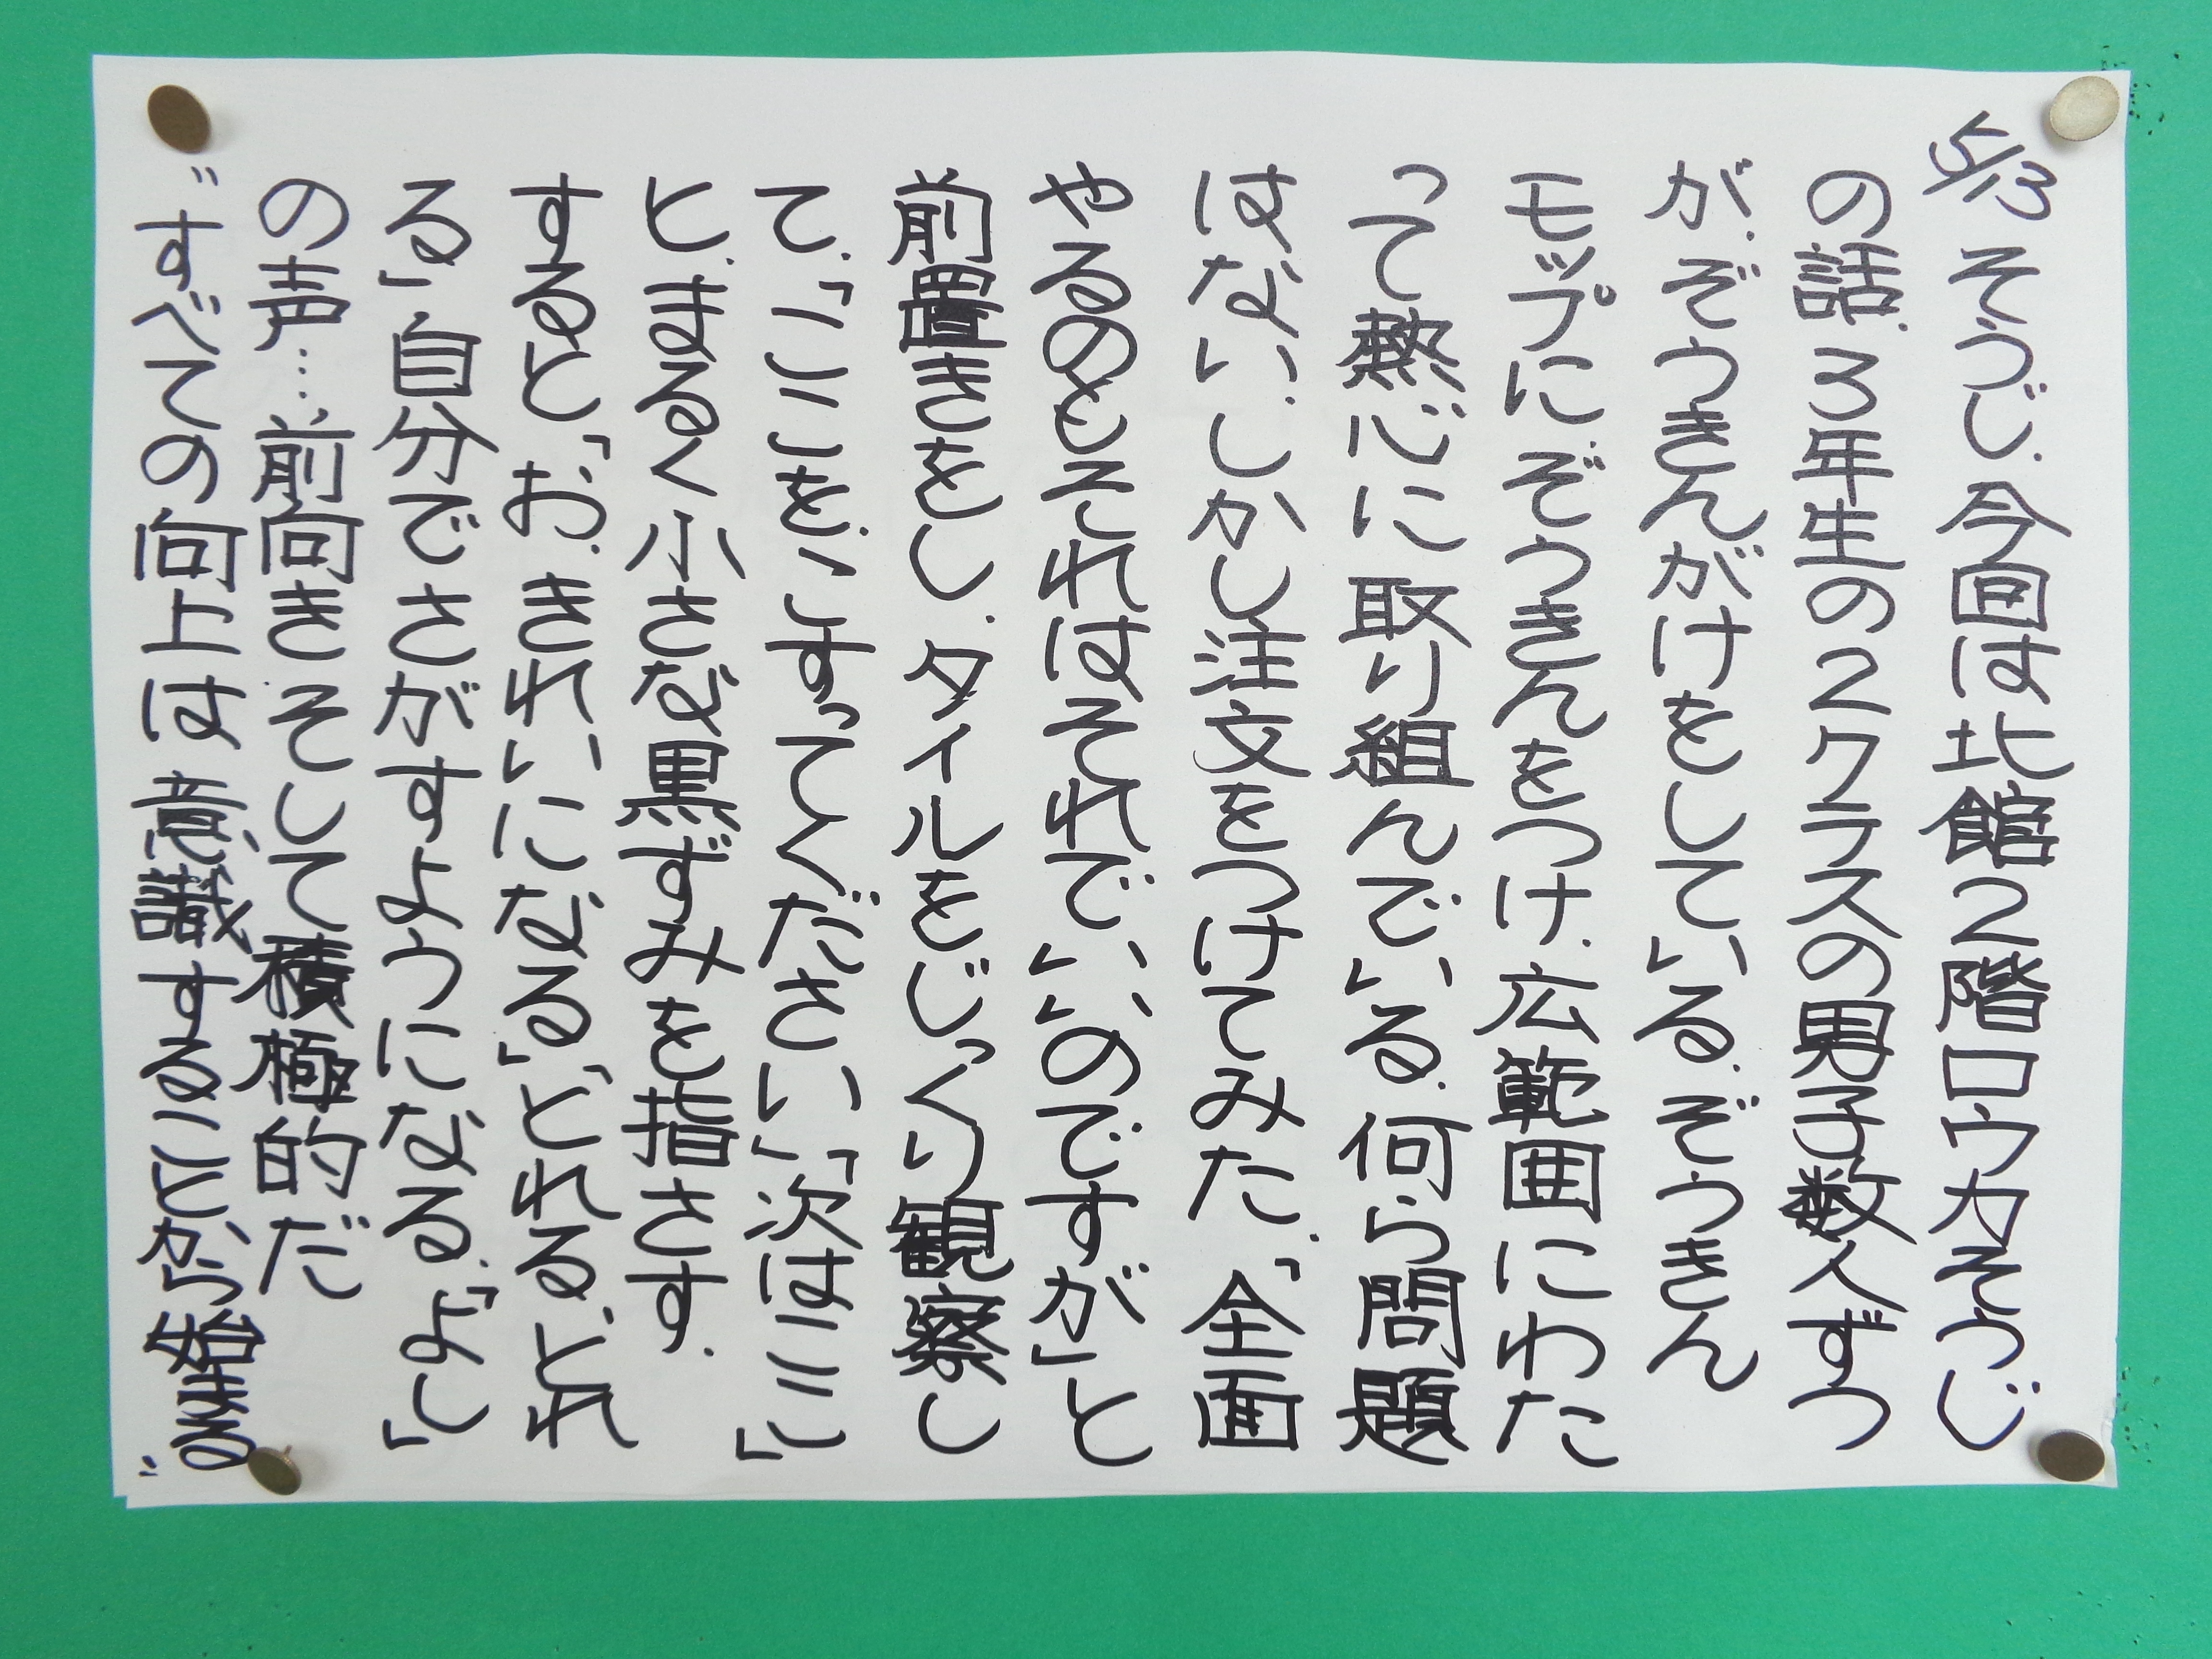 5/13 そうじ、今回は北館2階ロウカそうじ
の話、3年生の2クラスの男子数人ずつ
が、ぞうきんがけをしている。ぞうきん
モップにぞうきんをつけ、広範囲にわた
って熱心に取り組んでいる。何ら問題
はない、しかし注文をつけてみた。「全面
やるのもそれはそれでいいのですが」と
前置きをし、タイルをじっくり観察し
て、「ここを、こすってください」「次はここ」
と、まるく小さな黒ずみを指さす。
すると「お、きれいになる」「とれる、とれ
る」自分でさがすようになる。「よし」
の声…前向きそして積極的だ
"すべての向上は意識することから始まる"